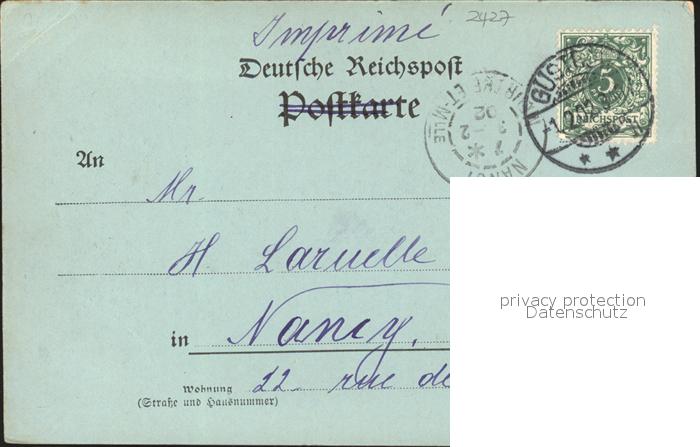 Imprimé
2427
Deutsche Reichspost
Postkarte
5
REICHSPOST
NANCY
MLLE
7 * 3-2
02
An
Mr.
H Laruelle
in Nancy.
Wohnung 22 rue de
(Straße und Hausnummer)
privacy protection
Datenschutz